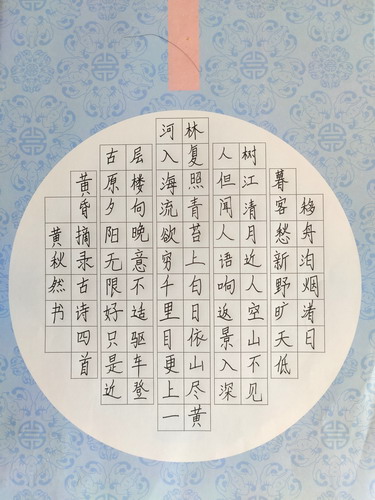 移舟泊烟渚日
暮客愁新野旷天低
树江清月近人空山不见
人但闻人语响返景入深
林复照青苔上白日依山尽黄
河入海流欲穷千里目更上一
层楼向晚意不适驱车登
古原夕阳无限好只是近
黄昏摘录古诗四首
黄秋然书